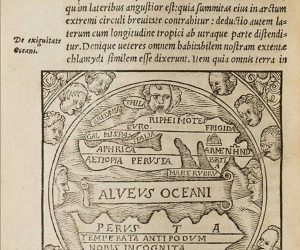 qu in lateribus angustior est: quia summitas eius in arctum
extremi circuli breuitate contrahitur: deductio autem la-
terum cum longitudine tropici ab utraque parte distendi-
tur. Denique ueteres omnem habitabilem nostram extentæ
chlamydi similem esse dixerunt. Item quia omnis terra in
De exiguitate
Oceani.
THILE
RIPHEI MOTES
EURO
FRIGIDA
GAL HISPA ITALIA
APHRICA
ARMEN IND
AETIOPIA PERUSTA
MARE RUBRU
ALVEVS OCEANI
PERUS T A
TEMPERATA ANTIPODUM
NOBIS INCOGNITA